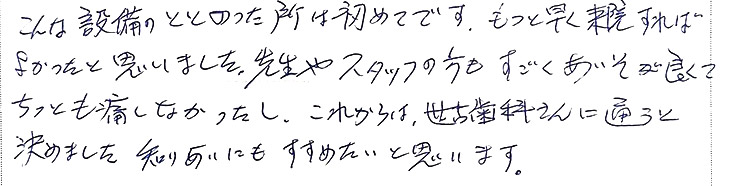 こんな設備のととのった所は初めてです。もっと早く来院すれば
よかったと思いました。先生やスタッフの方もすごくあいそが良くて
ちっとも痛くなかったし、これからは、世古歯科さんに通うと
決めました 知りあいにもすすめたいと思います。